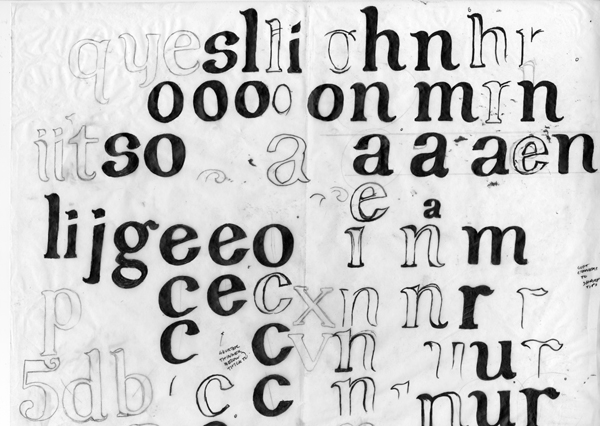 qyeslli o hnhr
ooooo on mrh
iitso a a a aen
e a
lijgeeo in m
p cecxn nrr
c cvn ur
5db c c n nur